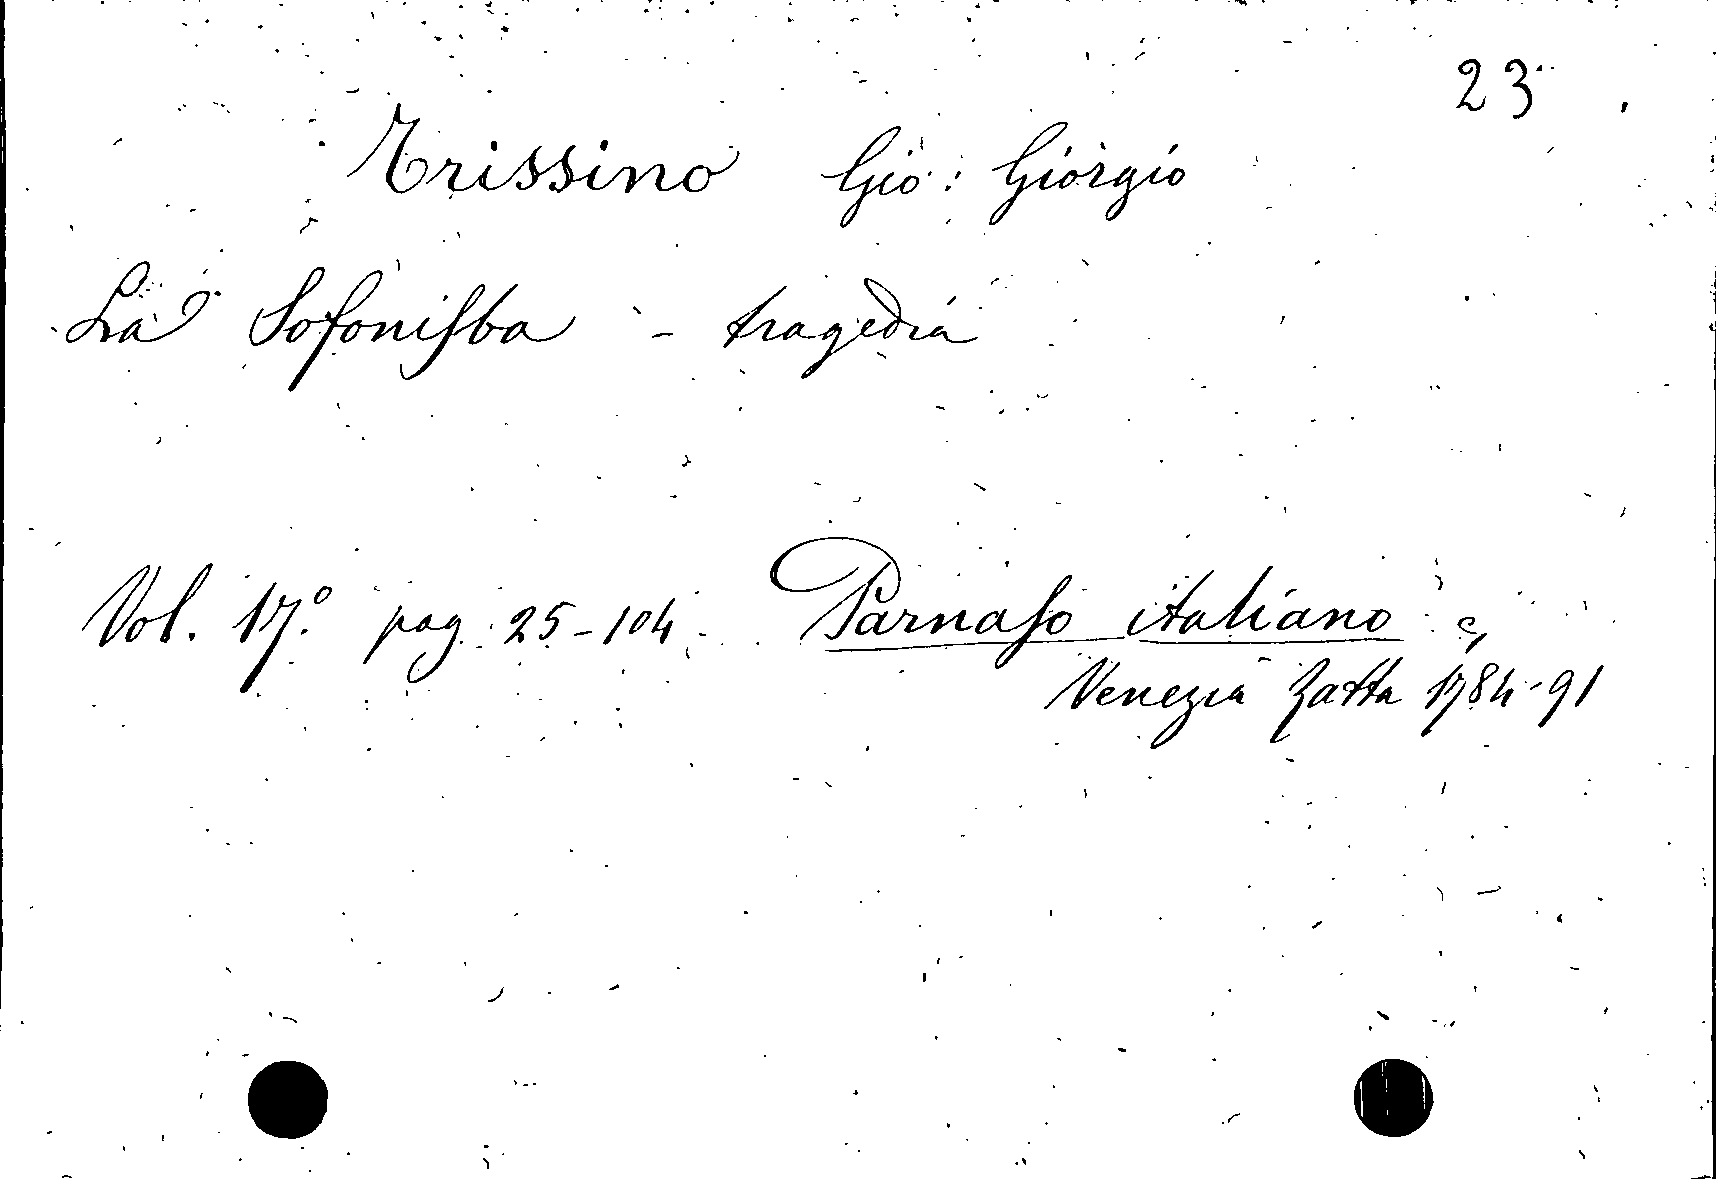 23
Trissino Gio: Giorgio
La Sofoniſba - tragedia
Vol. 17.° pag. 25-104. Parnaſo italiano
Venezia Zatta 1784-91